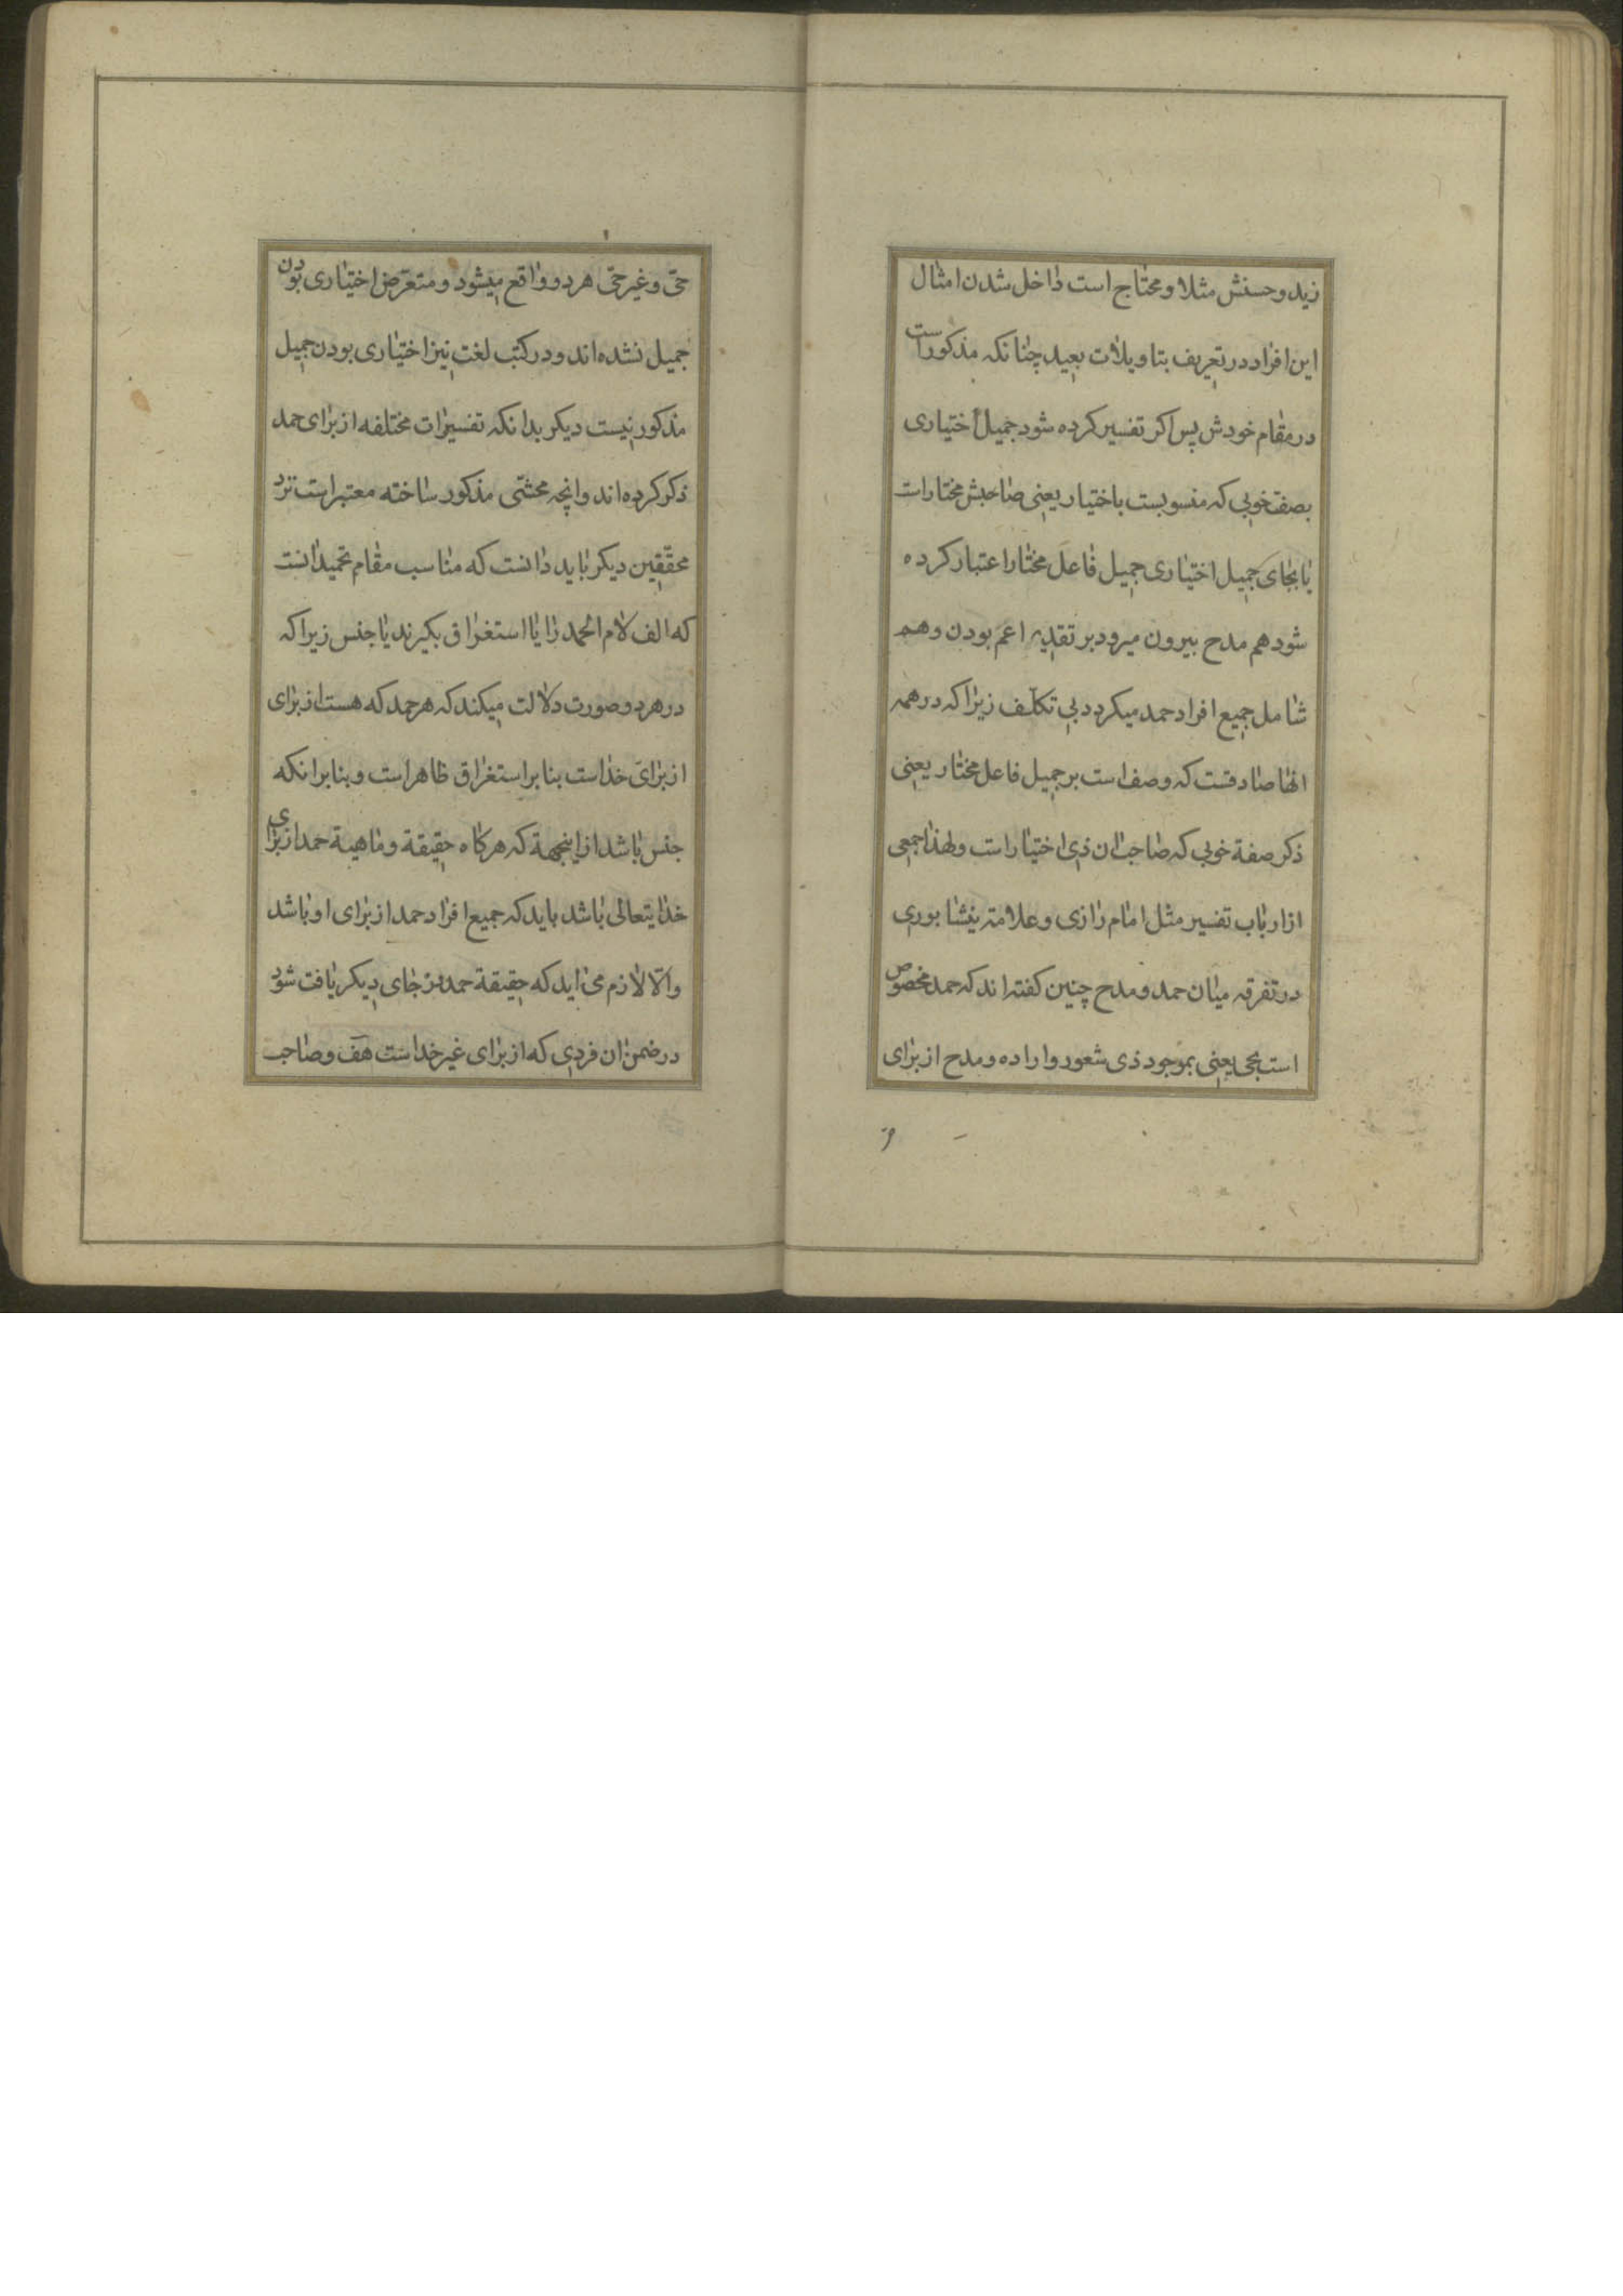 زید و حسنش مثلا و محتاج است داخل شدن امثال
این افراد در تعریف بتاویلات بعید چنانکه مذکور است
در مقام خودش پس اکر تفسیر کرده شود جمیل اختیاری
بصفت خوبی که منسوبست باختیار یعنی صاحبش مختار است
یا بجای جمیل اختیاری جمیل فاعل مختار اعتبار کرده
شود هم مدح بیرون میرود بر تقدیر اعم بودن و هم
شامل جمیع افراد حمد میکردد بی تکلف زیرا که در همه
انها صادقست که وصف است بر جمیل فاعل مختار یعنی
ذکر صفة خوبی که صاحب ان ذی اختیار است و لهذا جمعی
از ارباب تفسیر مثل امام رازی و علامته نیشابوری
در تفرقه میان حمد و مدح چنین کفته اند که حمد مخصوص
است بحی یعنی بموجود ذی شعور و اراده و مدح از برای
حی و غیر حی هر دو واقع میشود و متعرض اختیاری بودن
جمیل نشده اند و در کتب لغت نیز اختیاری بودن جمیل
مذکور نیست دیکر بدانکه تفسیرات مختلفه از برای حمد
ذکر کرده اند و انچه محشی مذکور ساخته معتبر است نزد
محققین دیکر باید دانست که مناسب مقام تحمید انست
که الف لام الحمد را یا استغراق بکیرند یا جنس زیرا که
در هر دو صورت دلالت میکند که هر حمد که هست از برای
از برای خداست بنابر استغراق ظاهر است و بنابر انکه
جنس باشد از اینجهة که هرکاه حقیقة و ماهیة حمد از برای
خدایتعالی باشد باید که جمیع افراد حمد از برای او باشد
والا لازم می اید که حقیقة حمد در جای دیکر یافت شود
در ضمن ان فردی که از برای غیر خداست هف و صاحب